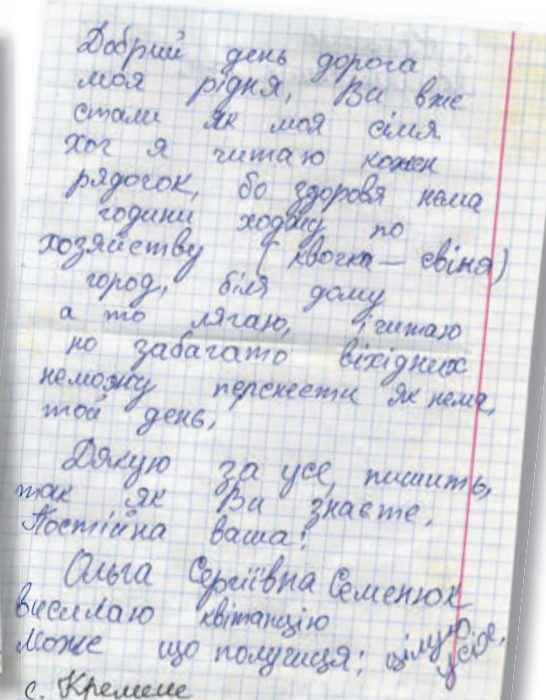 Добрий день дорога
моя рідня, Ви вже
стали як моя сімя
хоч я читаю кожен
рядочок, бо здоровя нема
години ходжу по
хозяйству (квочка — свіня)
город, біля дому
а то лягаю, і читаю
но забагато віхідних
неможу перенести як нема,
той день,
Дякую за усе, пишить,
так як Ви знаєте.
Постійна ваша:
Ольга Сергіївна Семенюк
висилаю квітанцію
Може що получиця; цілую усіх.
с. Кременє